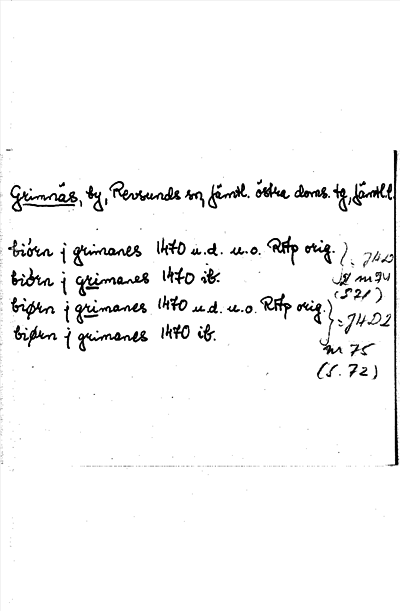 Grimnäs, by, Revsunds sn, Jämtl. östra doms. tg, Jämtl. l.
biörn j grimanes 1470 u.d. u.o. RAp orig. } = JHD
biörn j grimanes 1470 ib. 2 nr 74
(S 71)
biørn j grimanes 1470 u.d. u.o. RAp orig. } = JHD 2
biørn j grimanes 1470 ib.
nr 75
(S. 72)